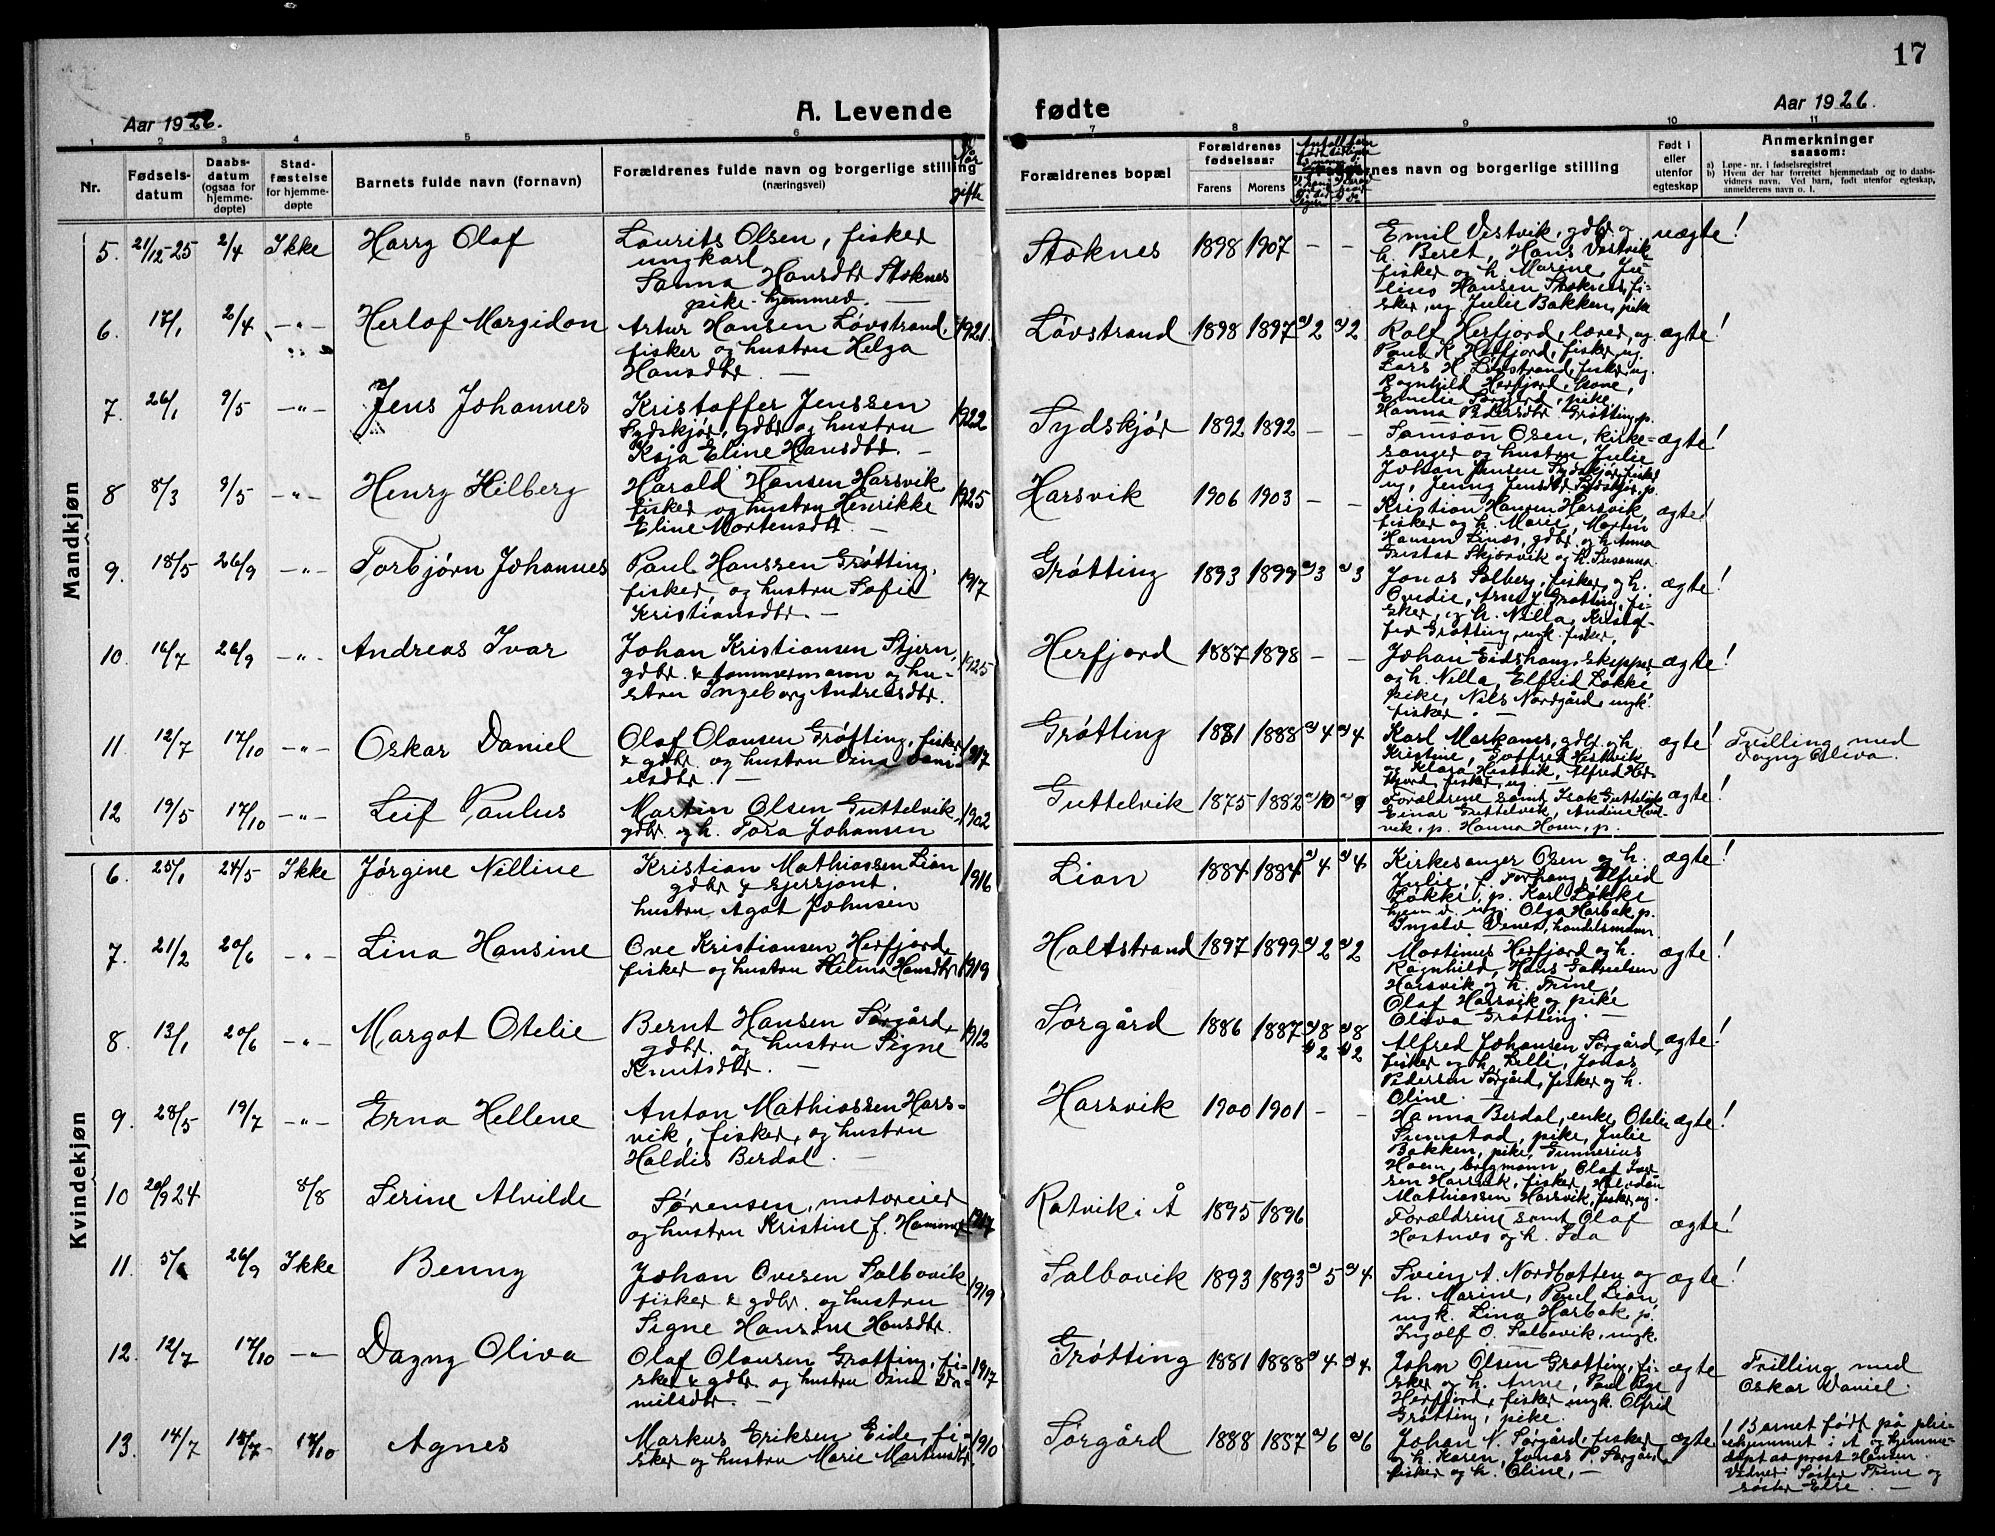 17
Aar 1926.
A. Levende
fødte
Aar 1926.
1 2 3 4 5 6 7 8 9 10 11
Nr.
Fødsels-
datum
Daabs-
datum
(ogsaa for
hjemme-
døpte)
Stad-
fæstelse
for hjemme-
døpte
Barnets fulde navn (fornavn)
Forældrenes fulde navn og borgerlige stilling
(næringsvei)
Når
gifte
Forældrenes bopæl
Forældrenes
fødselsaar
Farens
Morens
navn og borgerlige stilling
Født i
eller
utenfor
egteskap
Anmerkninger
saasom:
a) Løpe-nr. i fødselsregistret
b) Hvem der har forrettet hjemmedaab og to daabs-
vidners navn. Ved barn, født utenfor egteskap,
anmelderens navn o. l.
Mandkjøn
5. 21/12-25 2/4 Ikke Harry Olaf
Laurits Olsen, fisker
ungkarl
Sanna Hansdtr Stoknes
pike hjemmev. —
Stoknes 1898 1907 — —
Emil Vestvik, gdbr og
h. Beret, Hans Vestvik
fisker og h. Marine, Ju-
lius Hansen Stoknes, fi-
sker, og Julie Bakken, pike
uægte!
6. 17/1 2/4 —"— Herlof Margidon
Artur Hansen Løvstrand,
fisker og hustru Helga
Hansdtr. —
1921
Løvstrand 1898 1897 a) 2 a) 2
Rolf Herfjord, lærer, og
Paul K. Herfjord, fisker, og
Lars H. Løvstrand, fisker, og
Ragnhild Herfjord, kone,
Emelie Sørgård, pike,
Hanna Pedersdtr Grøtting, p.
ægte!
7. 26/1 9/5 —"— Jens Johannes
Kristoffer Jenssen
Sydskjør, gdbr og hustru
Kaja Eline Hansdtr. —
1922
Sydskjør 1892 1892 — —
Samson Osen, kirke-
sanger og hustru Julie
Johan Jensen Sydskjør, fisker
og Jenny Jensdtr Sydskjør, p.
ægte!
8 8/3 9/5 —"— Henry Hilberg
Harald Hansen Harsvik
fisker og hustru Henrikke
Eline Mortensdtr. —
1925
Harsvik 1906 1903 — —
Kristian Hansen Harsvik,
fisker og h. Marie, Martin
Hansen Vinas, gdbr. og h. Anna
Gustav Skjærvik og h. Susanna
ægte!
9. 18/5 26/9 —"— Torbjørn Johannes
Paul Hanssen Grøtting,
fisker, og hustru Sofie
Kristiansdtr. —
1917
Grøtting 1893 1899 a) 3 a) 3
Jonas Solberg, fisker, og h.
Ovedie, Arne J. Grøtting, fi-
sker, og h. Nilla, Kristof-
fer Grøtting, ungk. fisker,
ægte!
10. 16/7 26/9 —"— Andreas Ivar
Johan Kristiansen Stjern,
gdbr. & tømmermann og hu-
stru Ingeborg Andreasdtr.
1925
Herfjord 1887 1898 — —
Johan Eidshaug, skipper
og h. Nilla, Elfrid Løkke
pike, Nils Nordgård, ungk.
fisker. —
ægte!
11 12/7 17/10 —"— Oskar Daniel
Olaf Olausen Grøtting, fisker
& gdbr. og hustru Oma Dani-
elsdtr. —
1917
Grøtting 1881 1888 a) 4 a) 4
Karl Markams, gdbr og h.
Kristine, Evtfred Hestvik
og Klara Hestvik, Alfred Her-
fjord, fisker, ug.
ægte!
Tvilling med
Dagny Oliva.
12 19/5 17/10 —"— Leif Paulus
Martin Olsen Guttelvik,
gdbr. og h. Tora Johansen
1902
Guttelvik 1875 1882 a) 10 a) 9
Forældrene samt Isak Guttelvik
Einar Guttelvik, Andine Hest-
vik, p. Hanna Hosen, p.
ægte!
Kvindekjøn
6. 25/1 24/5 Ikke Jørgine Nilline
Kristian Mathiassen Lian
gdbr & sjersjant.
hustru Agot Johnsen
1916
Lian 1884 1884 a) 4 a) 4
Kirkesanger Osen og h.
Julie, f. Forhaug, Elfred
Løkke, p. Karl Løkke
hjem v. ung. Olga Harbak, p.
Ingolv Venes, handelsmann
ægte!
7. 21/2 20/6 —"— Lina Hansine
Ove Kristiansen Herfjord,
fisker og hustru Helma Hansdtr
1919
Holtstrand 1897 1899 a) 2 a) 2
Martinus Herfjord og h.
Ragnhild, Hans Gabrielsen
Harsvik og h. Trine,
Olaf Harsvik og pike
Oliva Grøtting. —
ægte!
8. 13/1 20/6 —"— Margot Otelie
Bernt Hansen Sørgård,
gdbr. og hustru Signe
Knutsdtr. —
1912
Sørgård 1886 1887 a) 8 a) 8
b) 2 b) 2
Alfred Johansen Sørgård,
fisker og h. Lelli, Jonas
Pedersen Sørgård, fisker og h.
Oline. —
ægte!
9. 28/5 19/7 —"— Erna Hellene
Anton Mathiassen Hars-
vik, fisker, og hustru
Haldis Berdal. —
Harsvik 1900 1901 — —
Hanna Berdal, enke, Otelie
Sumstad, pike, Julie
Bakken, pike, Gunnerius
Hoem, brygmann, Olaf Iver-
sen Harsvik, fisker, Halvdan
Mathiassen Harsvik, fisker, ug.
ægte!
10 20/9 24 8/8 Serine Alvilde
Sørensen, motoreier
og hustru Kristine f. Hammer
1917
Ratvik i Å 1895 1896
Forældrene samt Olaf
Hostnes og h. Ida
ægte!
11. 5/ 26/9 Ikke Benny
Johan Ovesen Salbovik
fisker & gdbr. og hustru
Signe Hansine Hansdtr.
1919
Salbovik 1893 1893 a) 5 a) 4
Svein A. Nordbotten og
h. Marine, Paul Lian
ungk. Lina Harbak, p.
Ingolf O. Salbovik, ungk.
ægte!
12. 12/7 17/10 —"— Dagny Oliva
Olaf Olausen Grøtting, fi-
sker & gdbr. og hustru Oma Da-
nielsdtr. —
1917
Grøtting 1881 1888 a) 4 a) 4
John Olsen Grøtting, fi-
sker og h. Anne, Paul Åge
Herfjord, fisker ungk. Olfrid
Grøtting, pike.
ægte
Tvilling med
Oskar Daniel.
13. 14/7 15/7 17/10 Agnes
Markus Eriksen Eide, fi-
sker og hustru Marie Martinsdtr
1910
Sørgård 1888 1887 a) 6 a) 6
Johan N. Sørgård, fisker,
og h. Karen, Jonas P. Sørgård,
fisker og h. Oline, —
ægte
! Barnet født på plei-
ehjemmet i Å og hjemme-
døpt av prest Hansen.
Vidner: Søster Trine og
søster Else. —